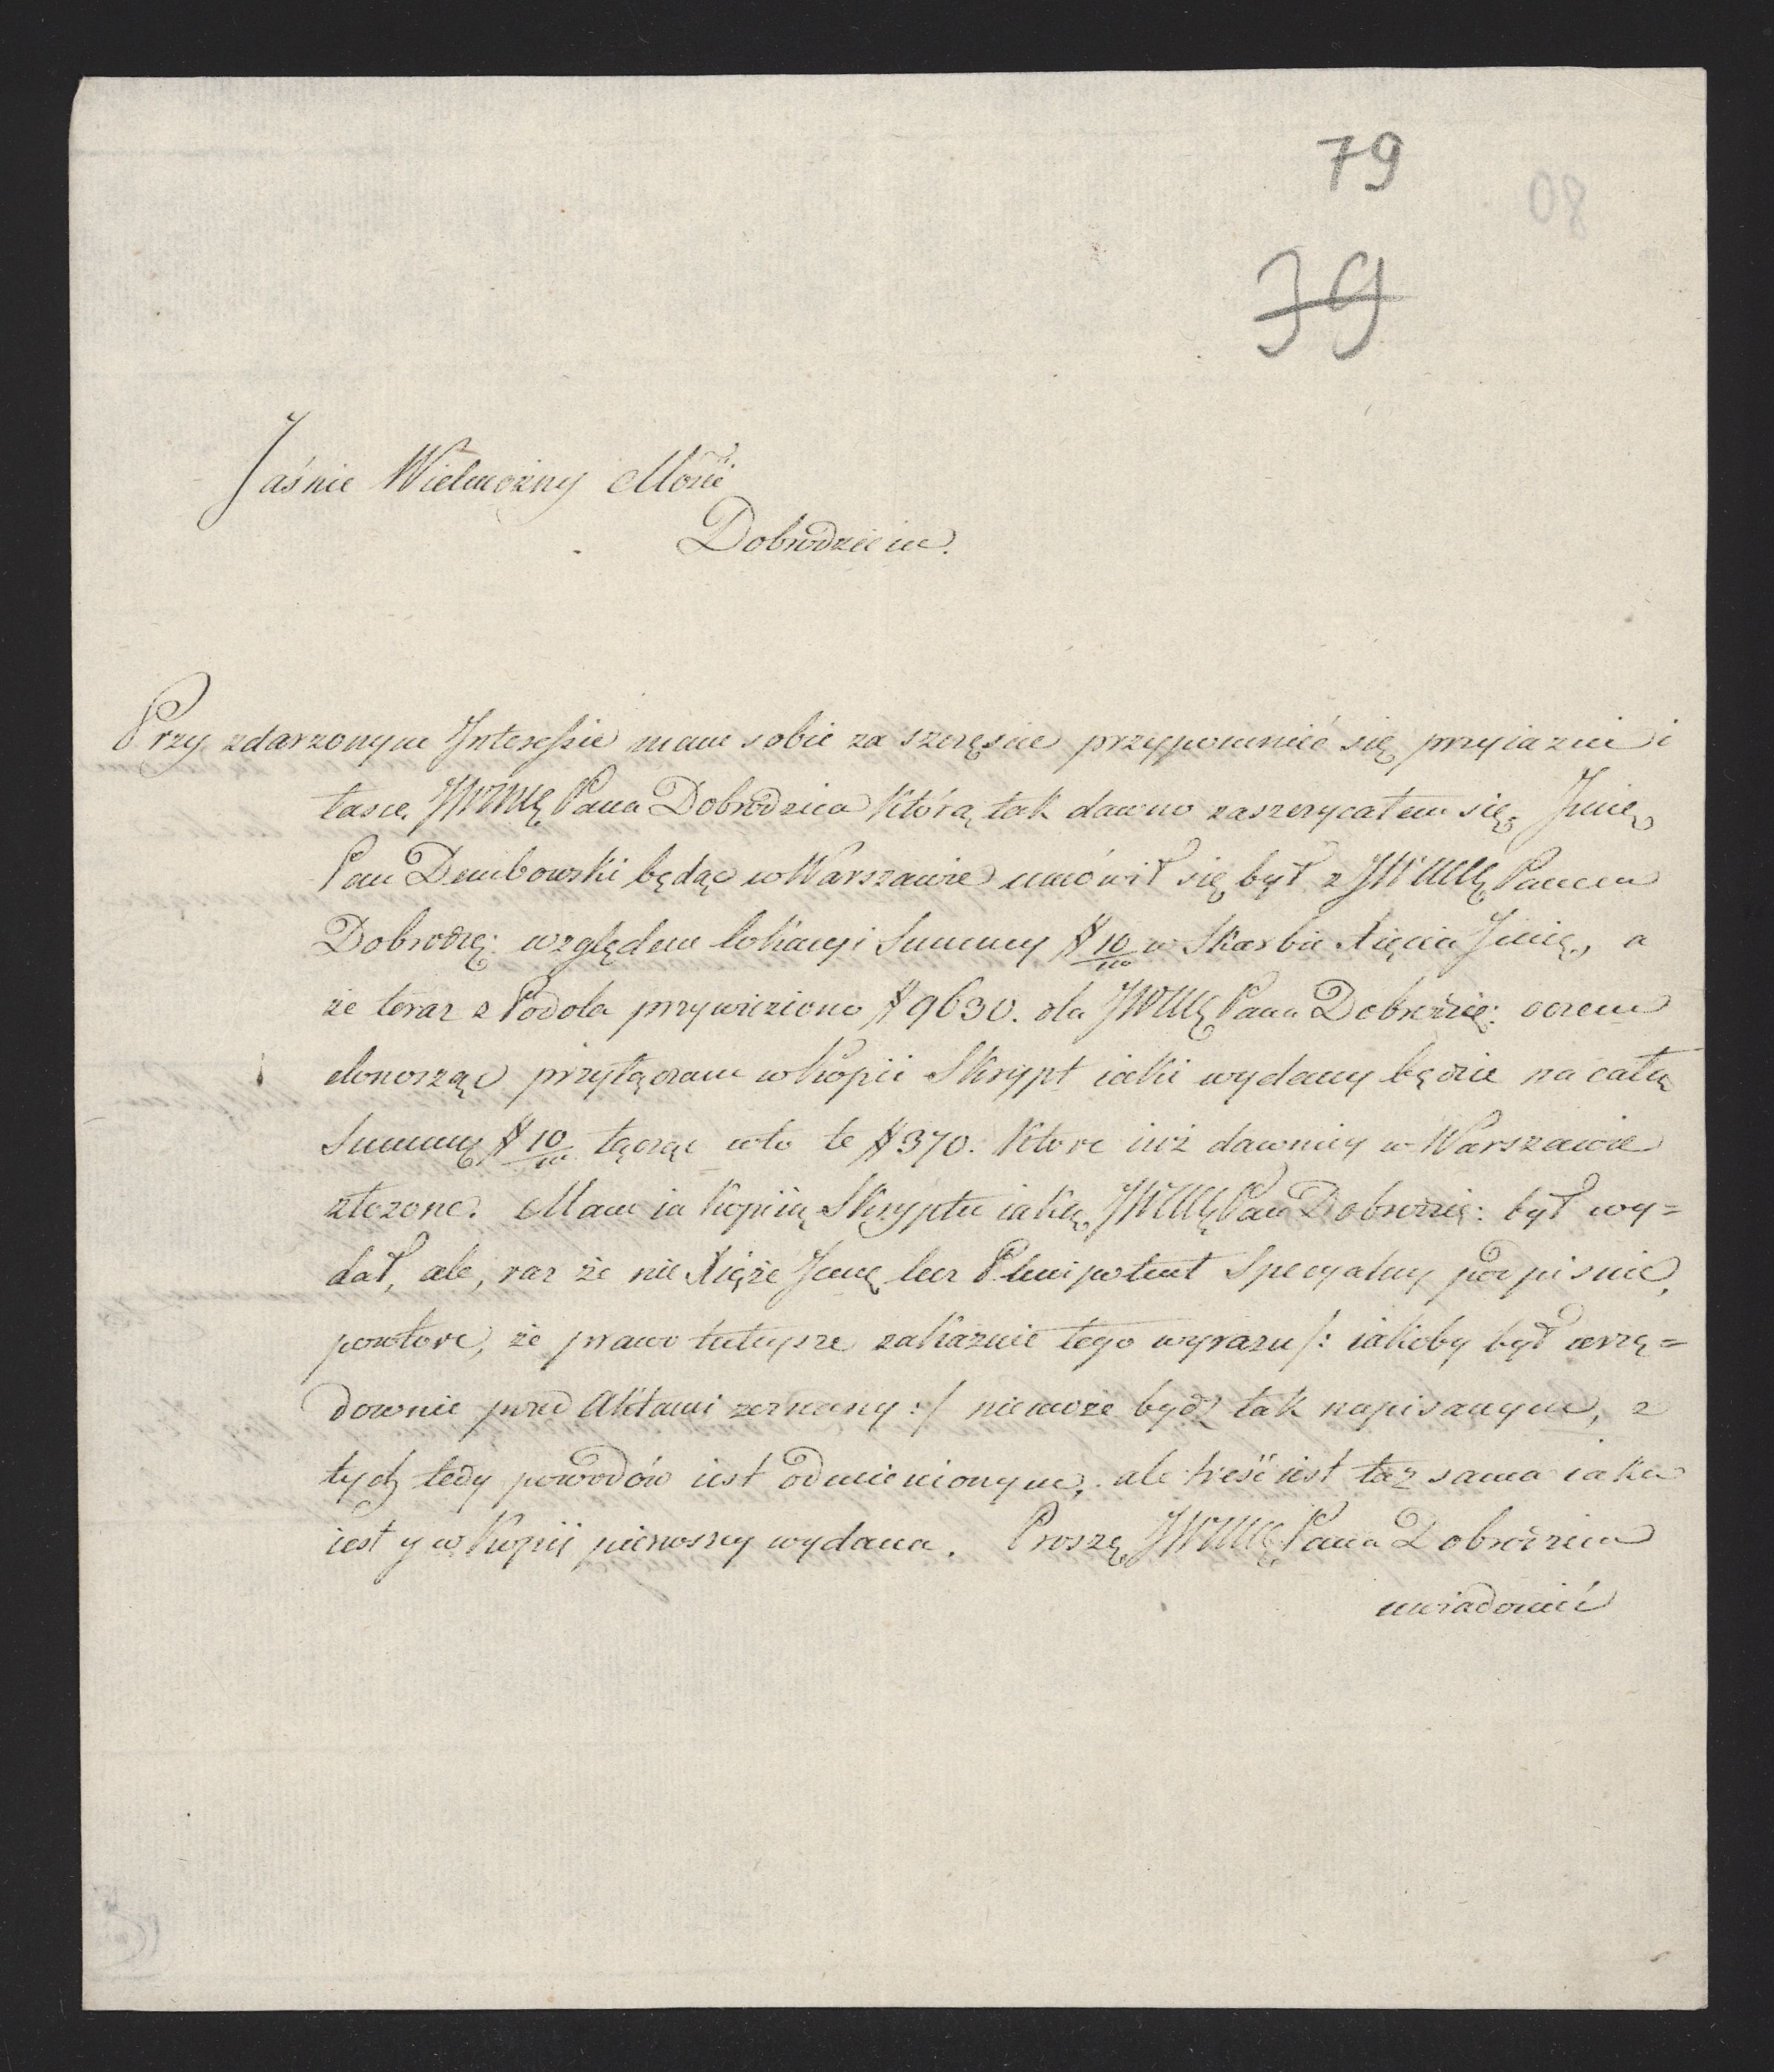 79
39
Jaśnie Wielmożny Mości
Dobrodzieiu.
Przy zdarzonym Interessie mam sobie za szczęście przypomnieć się przyiazni i
łasce JWWMę Pana Dobrodzieia którą tak dawno zaszczycałem się. Jmię
Pan Dembowski będąc w Warszawie umówił się był z JWMę Panem
Dobrodzię: względem lokacyi Summy # 10/m w Skarbie Xięcia Jmię, a
że teraz z Podola przywieziono # 9630. dla JWMę Pana Dobrodzię: oczem
donosząc przyłączam w kopii Skrypt iaki wydany będzie na całą
Summę # 10/m łącząc w to te # 370. które iuż dawniey w Warszawie
złożone. Mam ia kopiią Skryptu iaką JWMę Pan Dobrodzię: był wy=
dał, ale, raz że nie Xiąże Jmę lecz Plenipotent Specyalny podpisuie,
powtore, że prawo tuteysze zakazuie tego wyrazu /: iakoby był urzę=
downie przed Aktami zeznany :/ niemoże bydź tak napisanym, z
tych tedy powodów iest odmienionym, ale treść iest taż sama iaka
iest y w kopii pierwszey wydana. Proszę JWMę Pana Dobrodzieia
uwiadomić